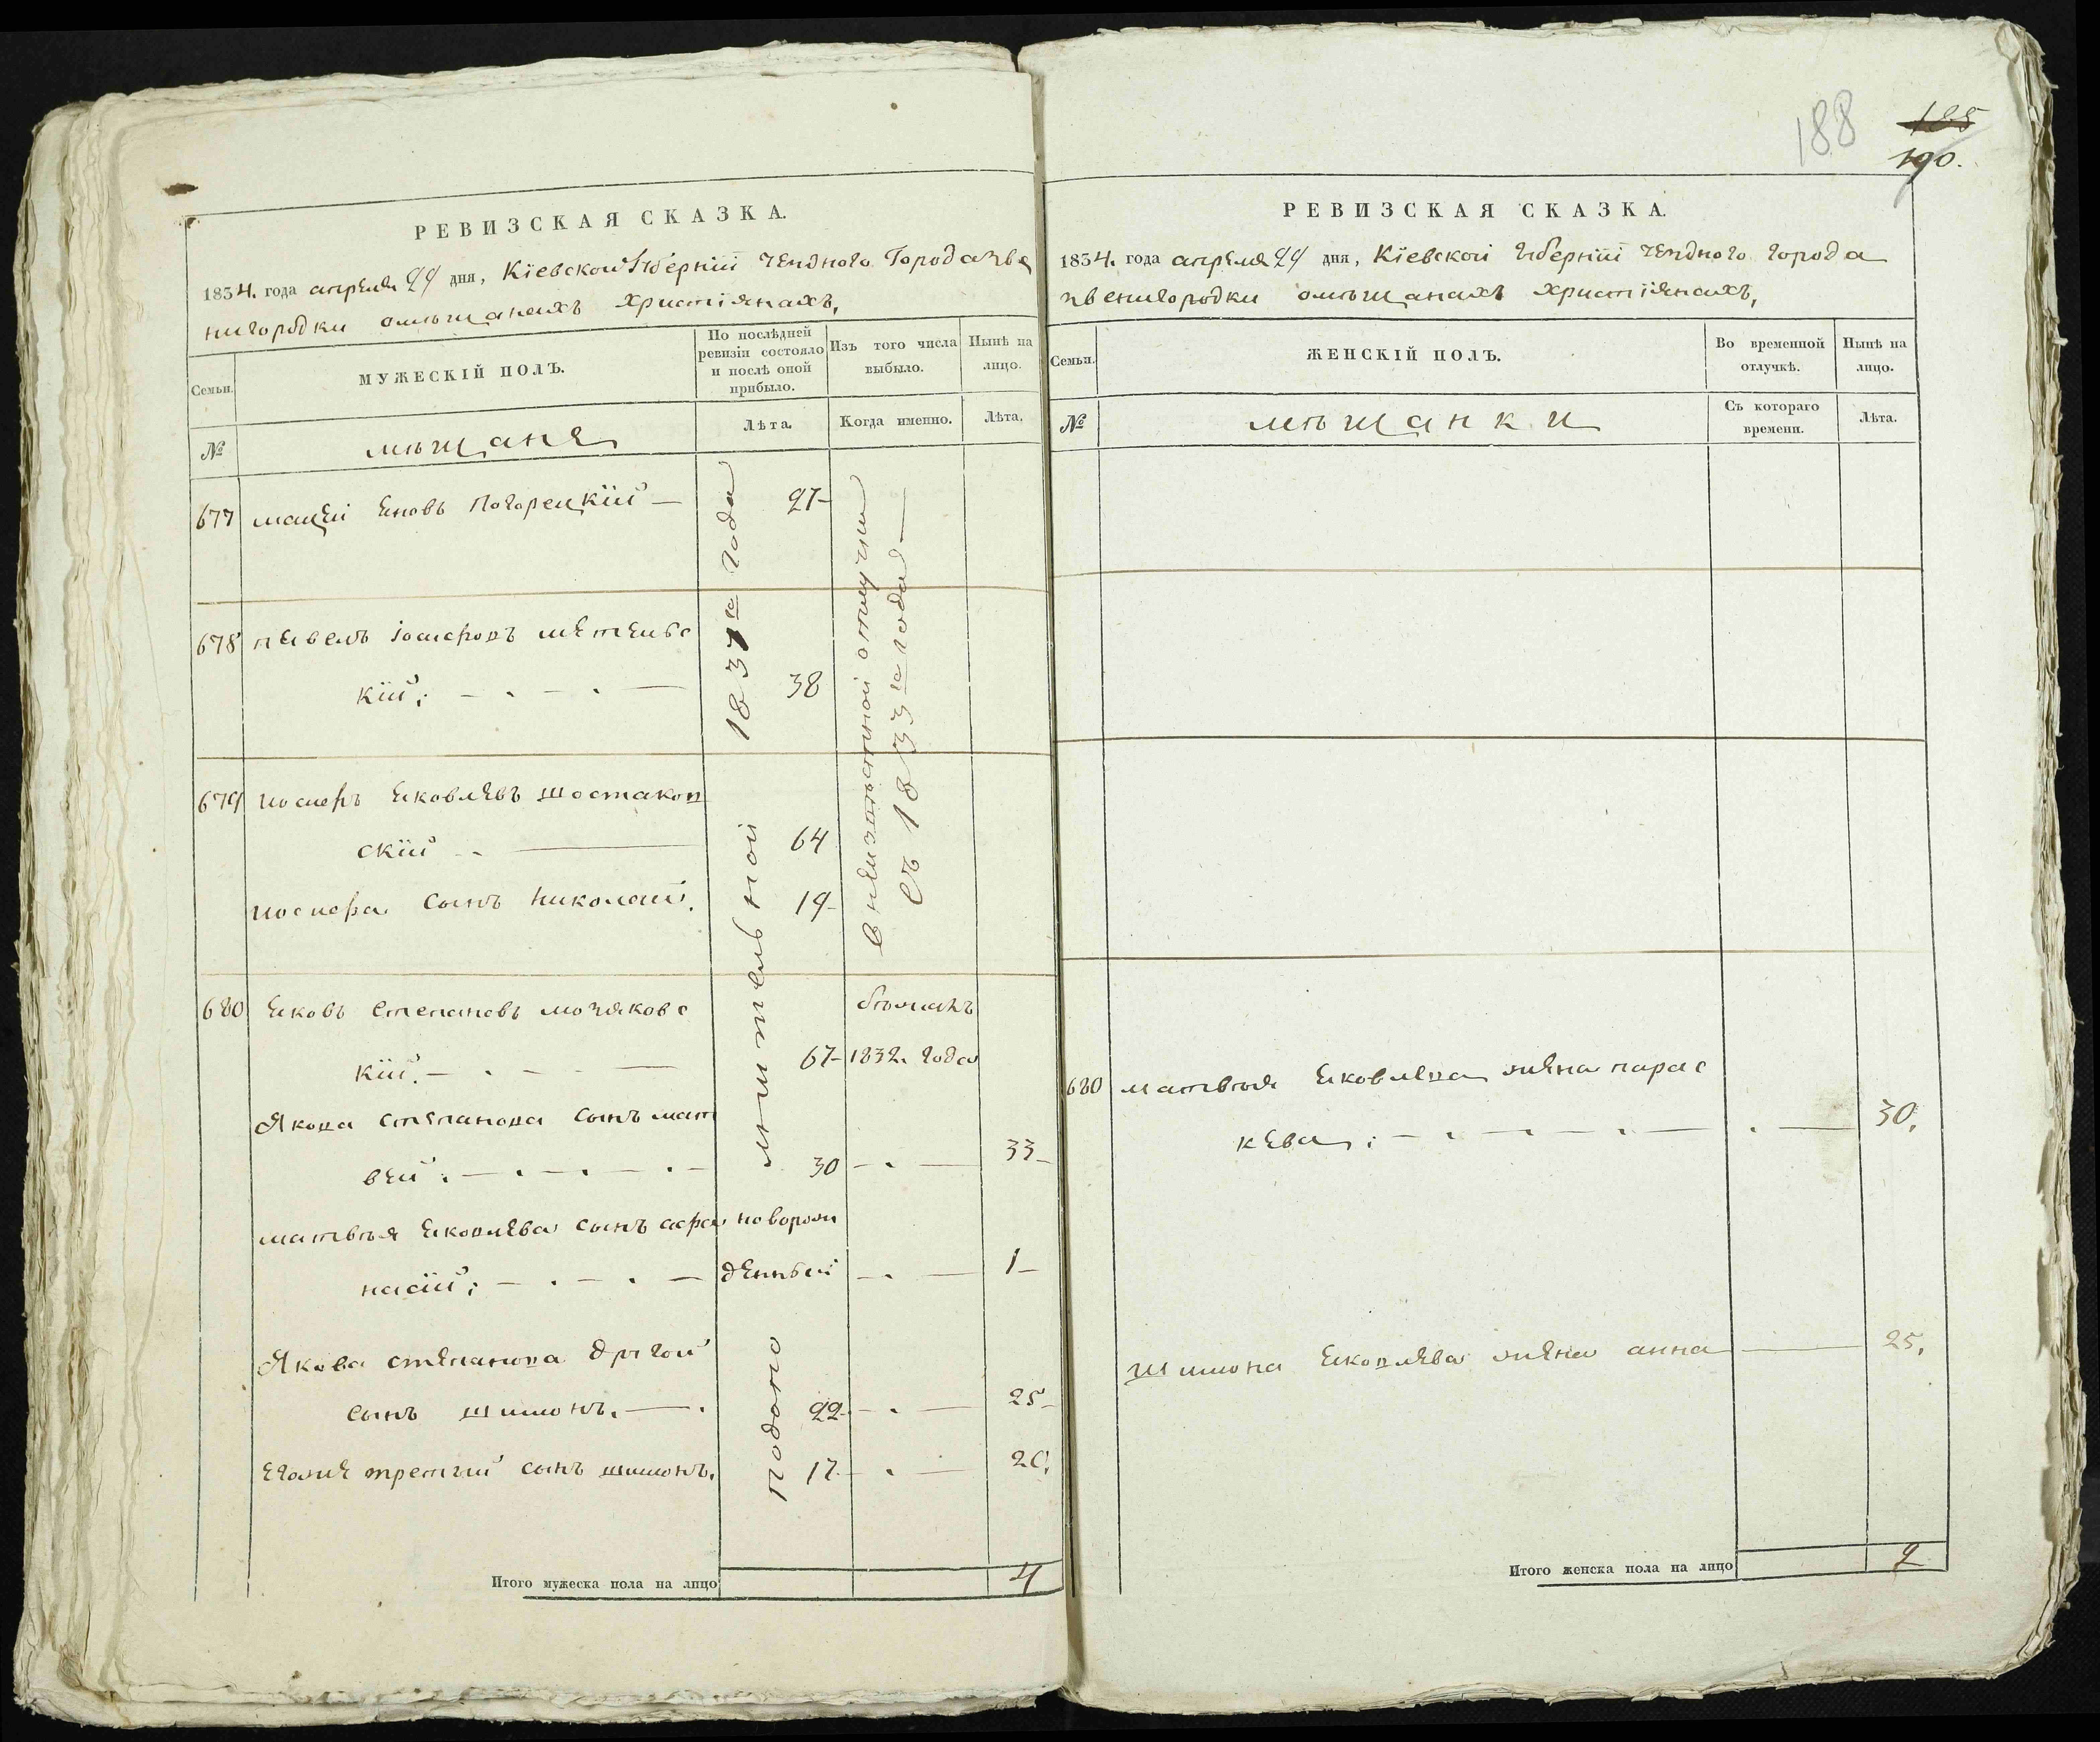 188
185
190.
РЕВИЗСКАЯ СКАЗКА.
1834. года апреля 24 дня, Кіевской Губерніи уезднаго Города Зве
нигородки о мѣщанахъ христіянахъ,
Семьи.
МУЖЕСКІЙ ПОЛЪ.
По послѣдней ревизіи состояло и послѣ оной прибыло.
Изъ того числа выбыло.
Нынѣ на лицо.
№
мѣщане
Лѣта.
Когда именно.
Лѣта.
подано мнительной 1831го года
в неизвѣстной отлучки
съ 1833го года
677 мацей Яновъ Погорецкій 27
678
кій; 38
679 иосифъ Яковлевъ Шостаков
скій 64
иосифа сынъ николай. 19
680 Яковъ Степановъ мозяковс
кій. 67 1832. года
Якова степанова сынъ мат
вей. 30 33
матвѣя Яковлева сынъ афа новорож
насій; денный 1
Якова степанова другой
сынъ шимонъ. 22 25
Егоже третій сынъ шимонъ. 17 20.
Итого мужеска пола на лицо 4
РЕВИЗСКАЯ СКАЗКА.
1834. года апреля 24 дня, Кіевской Губерніи уезднаго города
звенигородки о мѣщанахъ христіянахъ,
Семьи.
ЖЕНСКІЙ ПОЛЪ.
Во временной отлучкѣ.
Нынѣ на лицо.
№
мѣщанки
Съ котораго времени.
Лѣта.
680 матвѣя Яковлева жена парас
кева; 30.
шимона Яковлева жена анна 25.
Итого женска пола на лицо 2